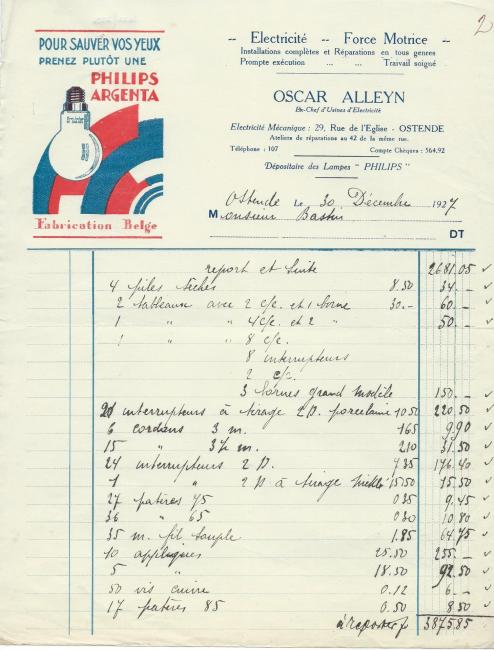 2
POUR SAUVER VOS YEUX
PRENEZ PLUTÔT UNE
PHILIPS
ARGENTA
Fabrication Belge
-- Electricité -- Force Motrice --
Installations complètes et Réparations en tous genres
Prompte exécution ... ... Traivail soigné
OSCAR ALLEYN
Ex-Chef d'Usines d'Electricité
Electricité Mécanique : 29, Rue de l'Eglise - OSTENDE
Ateliers de réparations au 42 de la même rue.
Téléphone : 107 Compte Chèques : 564,92
Dépositaire des Lampes " PHILIPS "
Ostende Le 30 Décembre 1927
Monsieur Bastin
DT
report et suite 2681.05
4 piles sèches 8.50 34.-
2 tableaux avec 2 c/c. et 1 borne 30.- 60.-
1 " " 4 c/c. et 2 " 50.-
1 " " 8 c/c.
8 interrupteurs
2 c/c.
3 bornes grand modèle 150.-
21 interrupteurs à tirage 2 D. porcelaine 10 50 220 50
6 cordons 3 m. 165 9.90
15 " 3 1/2 m. 210 31.50
24 interrupteurs 2 D. 7 35 176.40
1 " 2 D à tirage 15 50 15.50
27 patères 75 0 35 9.45
36 " 65 0 30 10.80
35 m. fil souple 1.85 64.75
10 appliques 25.50 255.-
5 " 18.50 92.50
50 vis cuivre 0.12 6.-
17 patères 85 0.50 8.50
à reporter f 3875.85